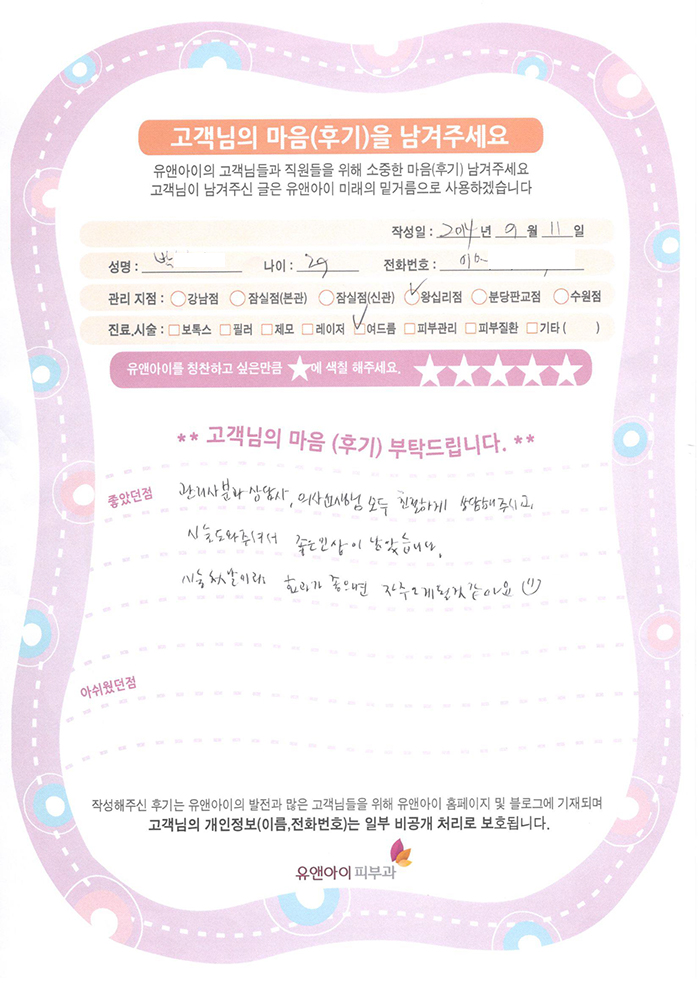 고객님의 마음(후기)을 남겨주세요
유앤아이의 고객님들과 직원들을 위해 소중한 마음(후기) 남겨주세요
고객님이 남겨주신 글은 유앤아이 미래의 밑거름으로 사용하겠습니다
작성일 : 2014 년 9 월 11 일
성명 : 박 나이 : 29 전화번호 : 010
관리 지점 : 강남점 잠실점(본관) 잠실점(신관) 왕십리점 분당판교점 수원점
진료.시술 : 보톡스 필러 제모 레이저 여드름 피부관리 피부질환 기타 ( )
유앤아이를 칭찬하고 싶은만큼 ★에 색칠 해주세요. ★★★★★
** 고객님의 마음 (후기) 부탁드립니다. **
좋았던점 관리사분과 상담사, 의사선생님 모두 친절하게 상담해주시고,
시술도와주셔서 좋은인상이 남았습니다.
시술첫날이라 효과가 좋으면 자주오게될것같아요
아쉬웠던점
작성해주신 후기는 유앤아이의 발전과 많은 고객님들을 위해 유앤아이 홈페이지 및 블로그에 기재되며
고객님의 개인정보(이름,전화번호)는 일부 비공개 처리로 보호됩니다.
유앤아이피부과